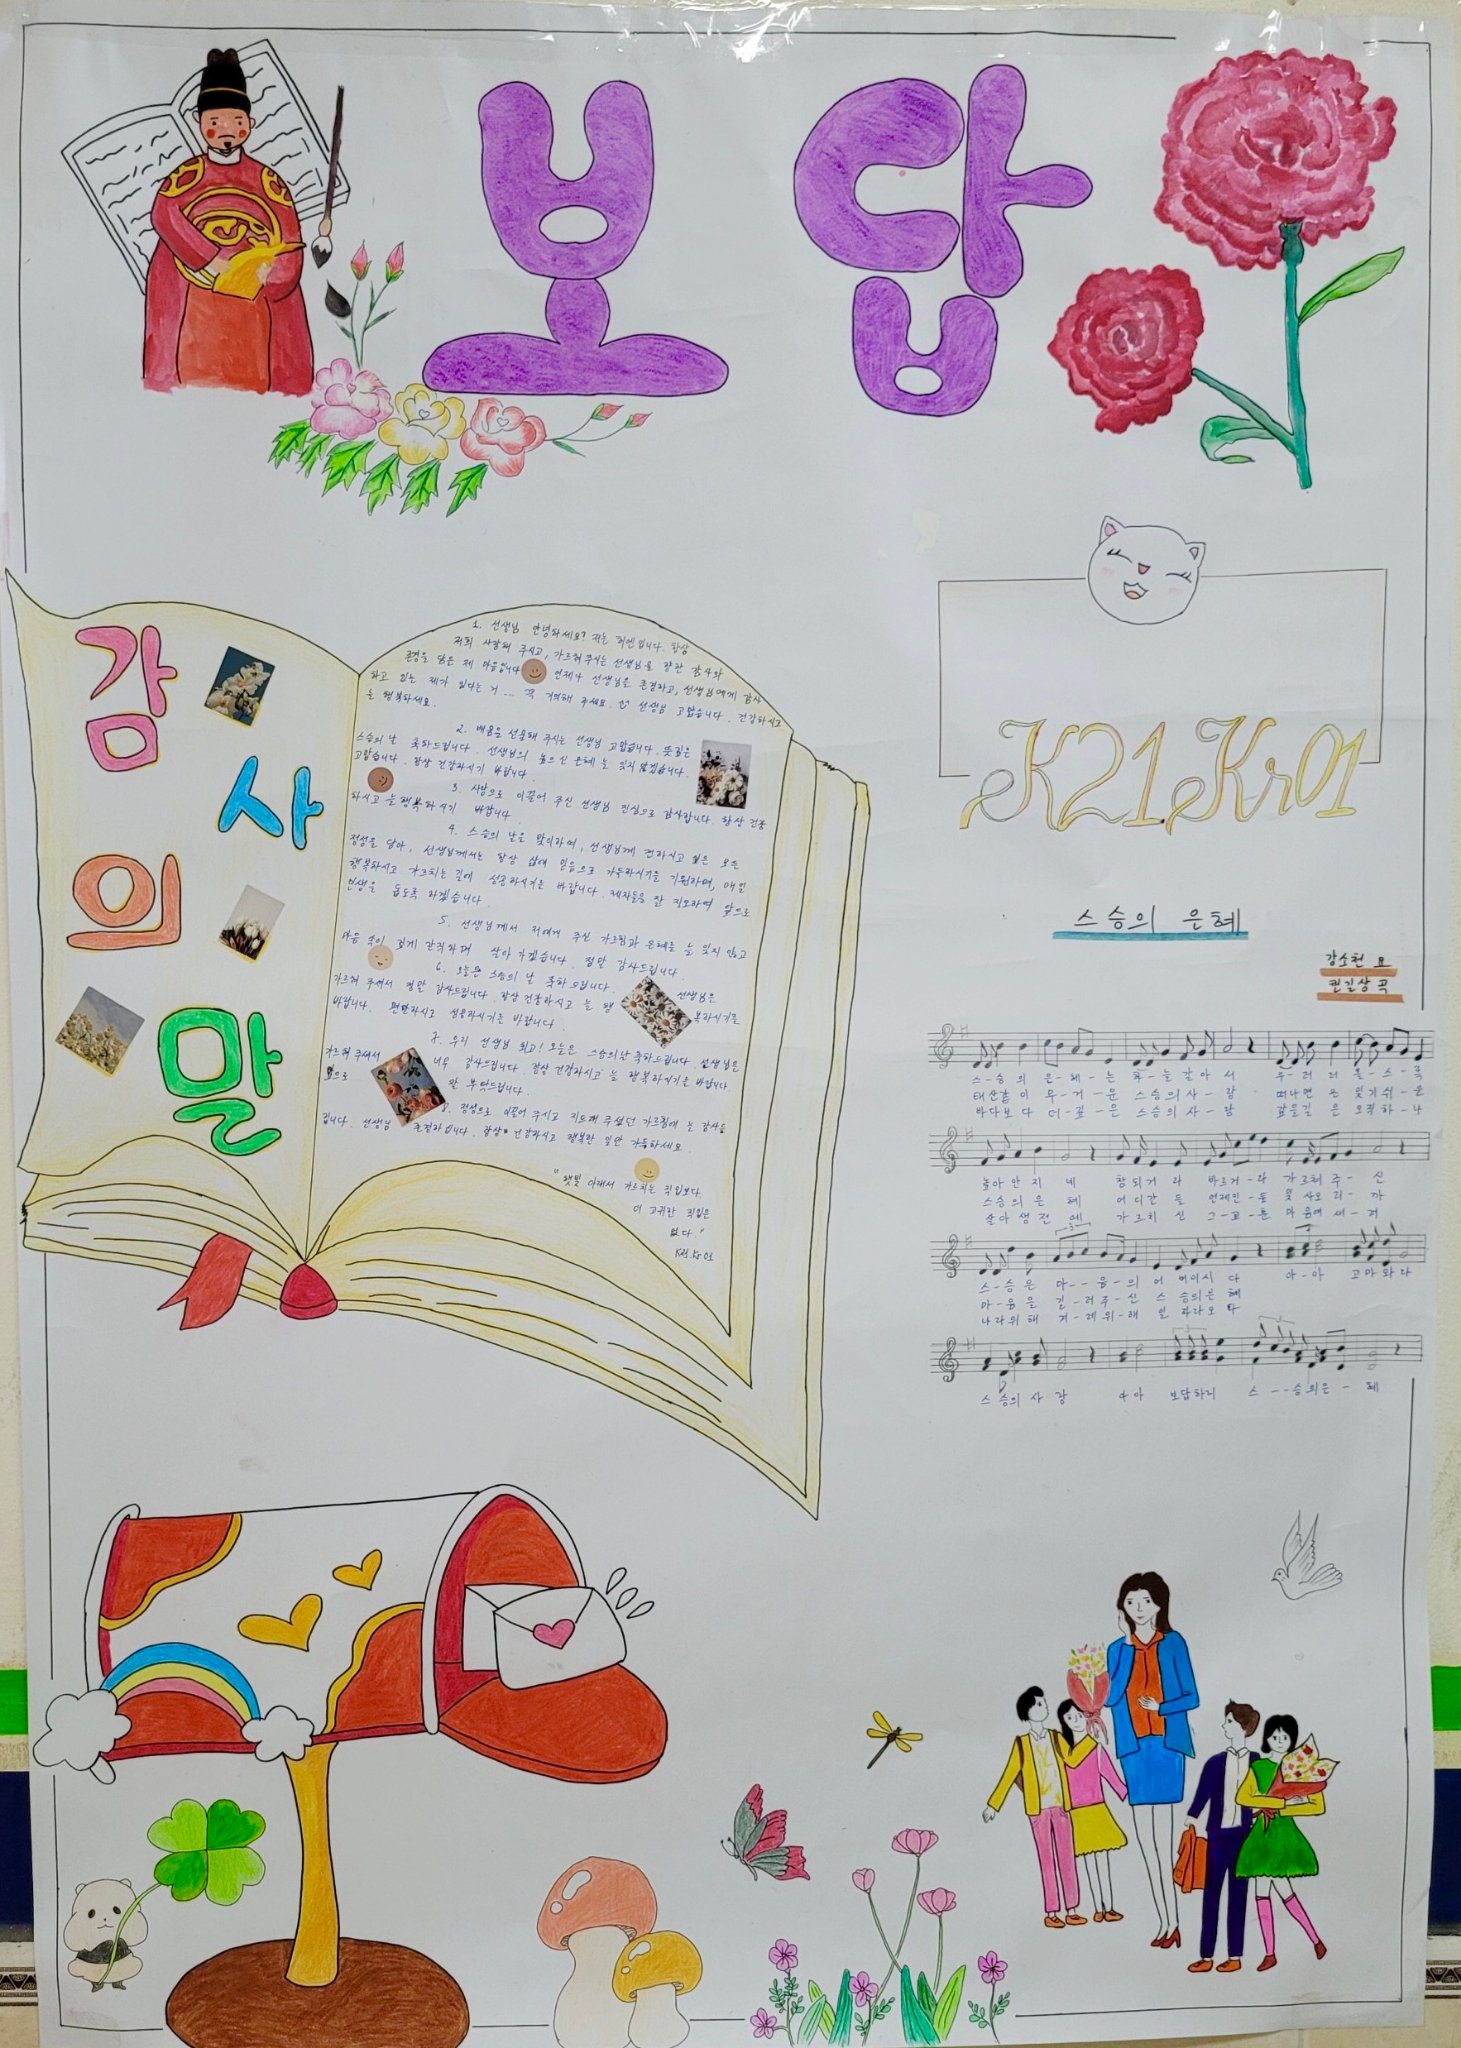 보답
감사의 말
1. 선생님 안녕하세요? 저는 입니다. 항상
저희 사랑해 주시고, 가르쳐 주시는 선생님을 향한 감사와
존경을 담은 제 마음입니다 언제나 선생님을 존경하고, 선생님에게 감사
하고 있는 제가 있다는 거 ... 꼭 기억해 주세요. 선생님 고맙습니다. 건강하시고
늘 행복하세요.
2. 배움을 선물해 주시는 선생님 고맙습니다. 뜻깊은
스승의 날 축하드립니다. 선생님의 높으신 은혜 늘 잊지 않겠습니다.
고맙습니다. 항상 건강하시기 바랍니다.
3. 사랑으로 이끌어 주신 선생님 진심으로 감사합니다. 항상 건강
하시고 늘 행복하시기 바랍니다.
4. 스승의 날을 맞이하여, 선생님께 전하시고 싶은 모든
정성을 담아, 선생님께서는 항상 삶에 믿음으로 가득하시기를 기원하며, 매일
행복하시고 가르치는 길에 성공하시기를 바랍니다. 제자들을 잘 지도하여 앞으로
인생을 돕도록 하겠습니다.
5. 선생님께서 저에게 주신 가르침과 은혜를 늘 잊지 않고
마음 속이 깊게 간직하며 살아 가겠습니다. 정말 감사드립니다.
6. 오늘은 스승의 날 축하 드립니다. 선생님은
가르쳐 주셔서 정말 감사드립니다. 항상 건강하시고 늘 행복하시기를
바랍니다. 편안하시고 성공하시기를 바랍니다.
7. 우리 선생님 최고! 오늘은 스승의날 축하드립니다. 선생님은
가르쳐 주셔서 너무 감사드립니다. 항상 건강하시고 늘 행복하시기를 바랍니다.
앞으로 잘 부탁드립니다.
8. 정성으로 이끌어 주시고 지도해 주셨던 가르침에 늘 감사드
립니다. 선생님 존경합니다. 항상 건강하시고 행복한 일만 가득하세요.
"햇빛 아래서 가르치는 직업보다
더 고귀한 직업은
없다."
K21.Kr01
K21.Kr01
스승의 은혜
강소천 요
권길상 곡
스-승의 은-혜-는 하-늘같아서 우-러러볼-스-록
태산같이 무-거-운 스승의사-랑 떠나면은 잊기쉬-운
바다보다 더-깊-은 스승의사-랑 갚을길은 오직하-나
높아만지네 참되거라 바르거-라 가르쳐주-신
스승의은혜 어디간들 언제인-들 잊사오리-까
살아생전에 가르치신 그-교-훈 마음에새-겨
스-승은 마--음-의 어버이시다 아-아 고마와라
마-음을 길-러주-신 스승의은혜
나라위해 겨-레위-해 일하리오다
스승의사랑 아아 보답하리 스--승의은-혜